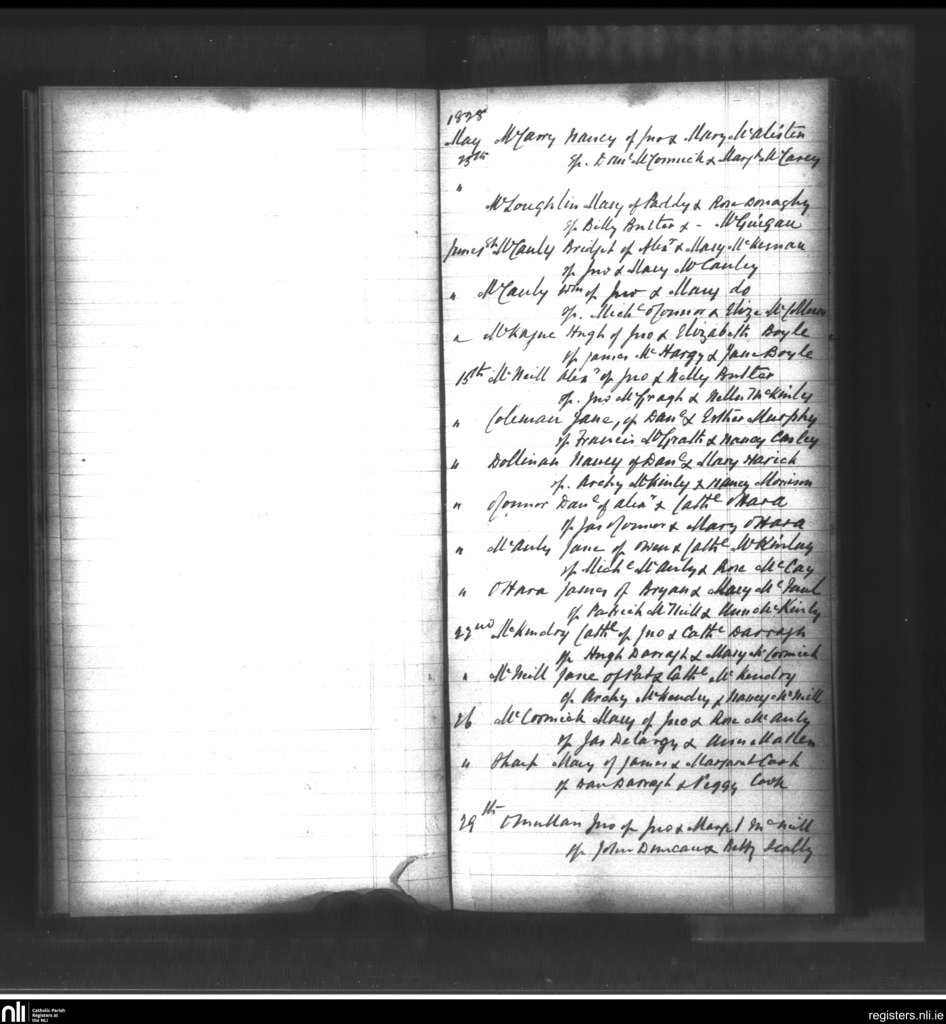 1828
May McCarry Nancy of Jno & Mary McAlister
25th Sp. Danl McCormick & Margt McCarey
"
McLoughlin Mary of Paddy & Rose Donaghy
Sp Billy Butler & - McGuigan
June 8th McCauly Bridget of Alexr & Mary McKernan
Sp Jno & Mary McCauley
" McCauly Wm of Jno & Mary do
Sp. Michl O'Connor & Eliza
" McKague Hugh of Jno & Elizabeth Boyle
Sp James McHargy & Jane Boyle
15th McNeill Alexr of Jno & Nelly Butler
Sp. Jno McGragh & McKinley
" Coleman Jane, of Danl & Esther Murphy
Sp Francis McGrath & Nancy Casley
" Dollinan Nancy of Danl & Mary Harick
Sp. Archy McKinly & Nancy Morrison
" O'Connor Danl of Alexr & Cathe O'Hara
Sp Jas O'Connor & Mary O'Hara
" McAuly Jane of Owen & Cathe McKinlay
Sp Michl McAuly & Rose McCay
" O'Hara James of Bryan & Mary McFaul
Sp Patrick McNeill & Ann McKinly
22nd McKendry Cathe of Jno & Cathe Darragh
Sp Hugh Darragh & Mary McCormick
" McNeill Jane of Pat & Cathe McKendry
Sp Archy McKendry & Nancy McNeill
26 McCormick Mary of Jno & Rose McAuly
Sp Jas Delargy & Mallen
" Sharp Mary of James & Margaret Cook
Sp Dan Darragh & Peggy Cook
29th O'Mullan Jno of Jno & Margt McNeill
Sp John Duncan & Betty Scally
nli Catholic Parish Registers at the NLI
registers.nli.ie